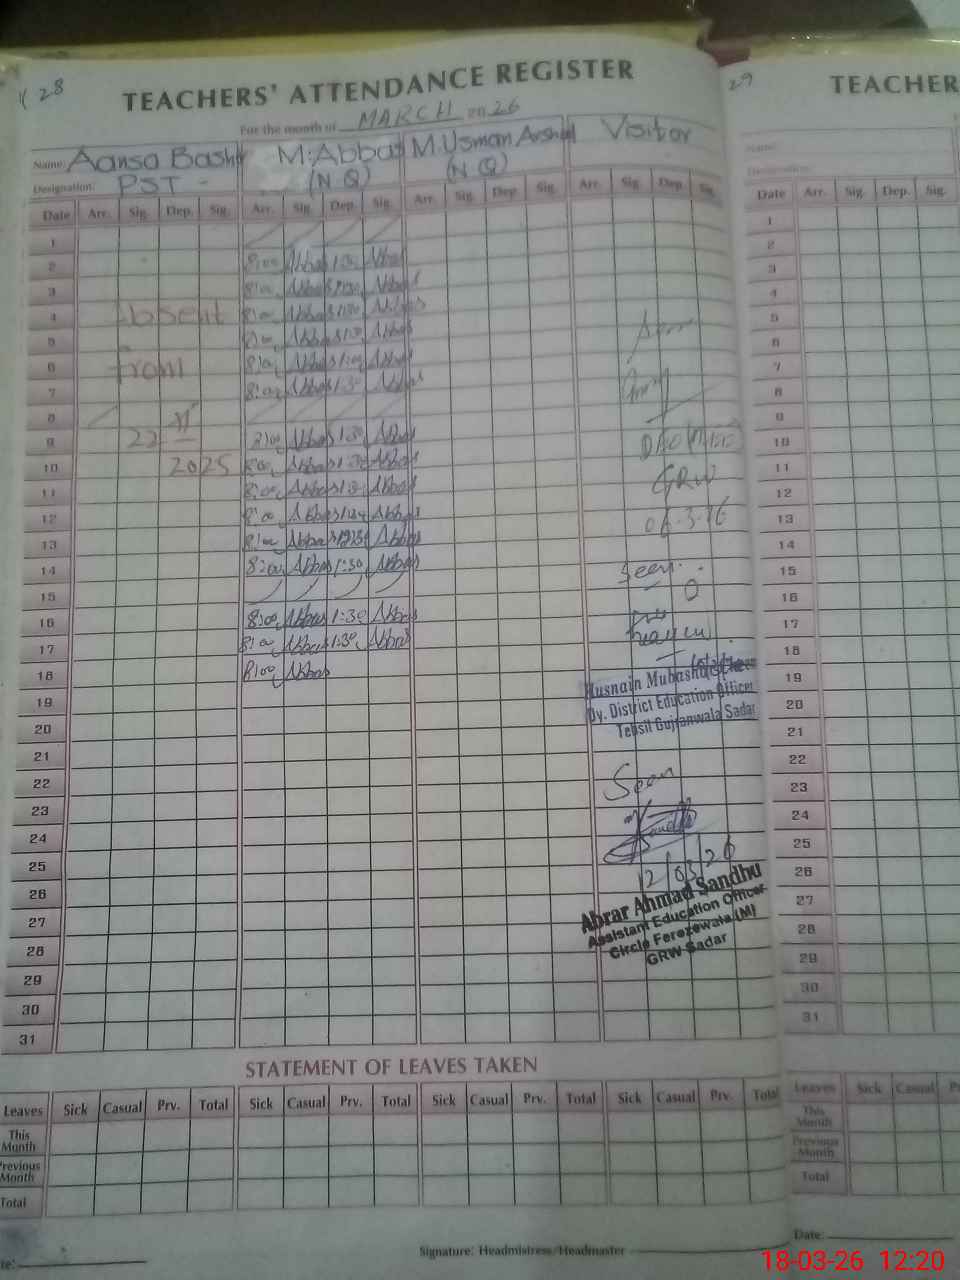 28
TEACHERS' ATTENDANCE REGISTER
For the month of MARCH 2026
Name: Aansa Bashir M. Abbas M. Usman Arshad Visitor
Designation: PST - (N Q) (N Q)
Date Arr. Sig. Dep. Sig. Arr. Sig. Dep. Sig. Arr. Sig. Dep. Sig. Arr. Sig. Dep. Sig.
1
2 8:00 Abbas 1:30 Abbas
3 8:00 Abbas 1:30 Abbas
4 Absent 8:00 Abbas 1:30 Abbas
5 8:00 Abbas 1:30 Abbas
6 from 8:00 Abbas Abbas
7 8:00 Abbas 1:30 Abbas
8
9 22 11 8:00 Abbas 1:30 Abbas
10 2025 8:00 Abbas 1:30 Abbas
GRW
11 8:00 Abbas 1:30 Abbas
12 8:00 Abbas Abbas
13 8:00 Abbas Abbas
14 8:00 Abbas 1:30 Abbas
Seen.
15
16 8:00 Abbas 1:30 Abbas
17 8:00 Abbas 1:30 Abbas
18 8:00 Abbas
Husnain Mubashar
Dy. District Education Officer
Tehsil Gujranwala Sadar
19
20
21
22
Seen
23
24
25
12/03/26
26
Abrar Ahmad Sandhu
Assistant Education Officer
Circle Ferozewala (M)
GRW Sadar
27
28
29
30
31
STATEMENT OF LEAVES TAKEN
Leaves Sick Casual Prv. Total Sick Casual Prv. Total Sick Casual Prv. Total Sick Casual Prv. Total
This Month
Previous Month
Total
Signature: Headmistress/Headmaster
29
TEACHER
Name:
Designation:
Date Arr. Sig. Dep. Sig.
1
2
3
4
5
6
7
8
9
10
11
12
13
14
15
16
17
18
19
20
21
22
23
24
25
26
27
28
29
30
31
Leaves Sick Casual
This Month
Previous Month
Total
Date:
18-03-26 12:20